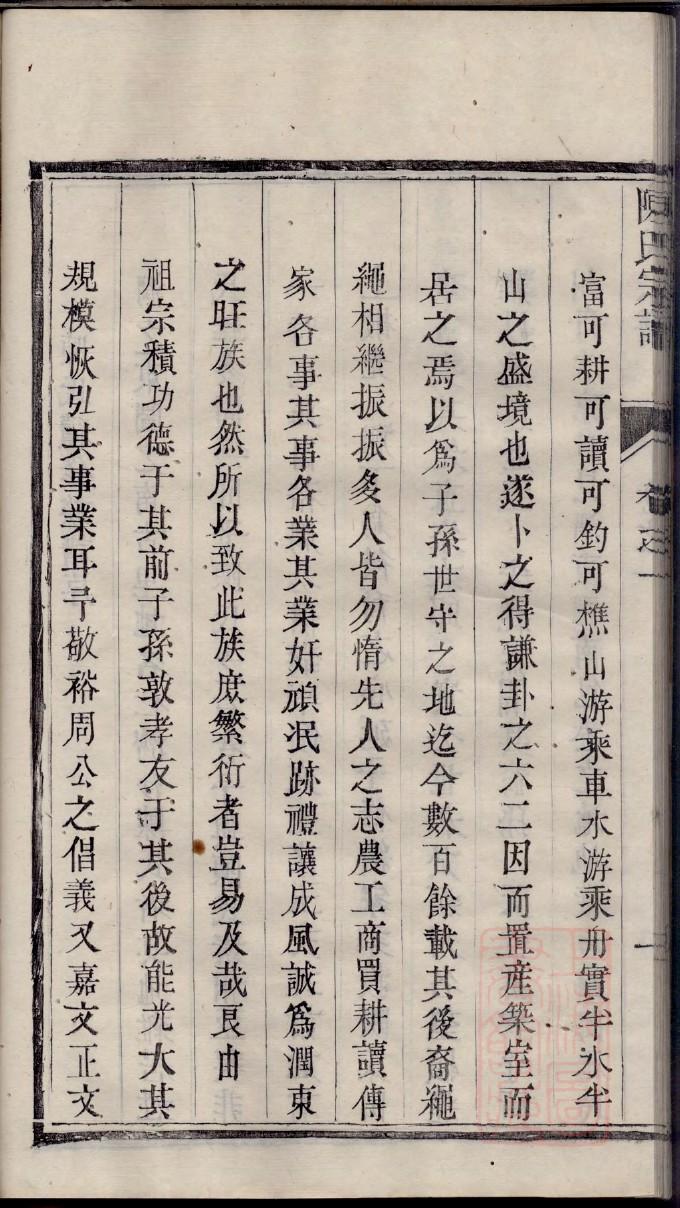 陳氏宗譜 卷之一 一
富可耕可讀可釣可樵山游乘車水游乘舟實半水半
山之盛境也遂卜之得謙卦之六二因而置產築室而
居之焉以爲子孫世守之地迄今數百餘載其後裔繩
繩相繼振振多人皆勿惰先人之志農工商買耕讀傳
家各事其事各業其業奸頑泯跡禮讓成風誠爲潤東
之旺族也然所以致此族庶繁衍者豈易及哉良由
祖宗積功德于其前子孫敦孝友于其後故能光大其
規模恢弘其事業耳予敬裕周公之倡義又嘉文正文